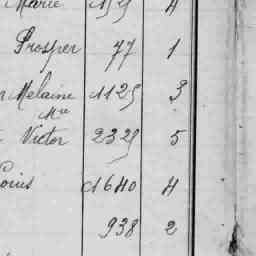 Marie 1525 4
Prosper 77 1
Melaine 1125 3
Mre
Victor 2325 5
Louis 1640 4
938 2